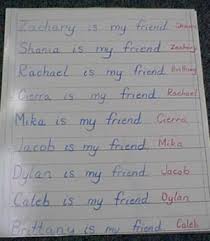 Zachary is my friend. Shania
Shania is my friend. Zachary
Rachael is my friend. Brittany
Cierra is my friend. Rachael
Mika is my friend. Cierra
Jacob is my friend. Mika
Dylan is my friend. Jacob
Caleb is my friend. Dylan
Brittany is my friend. Caleb